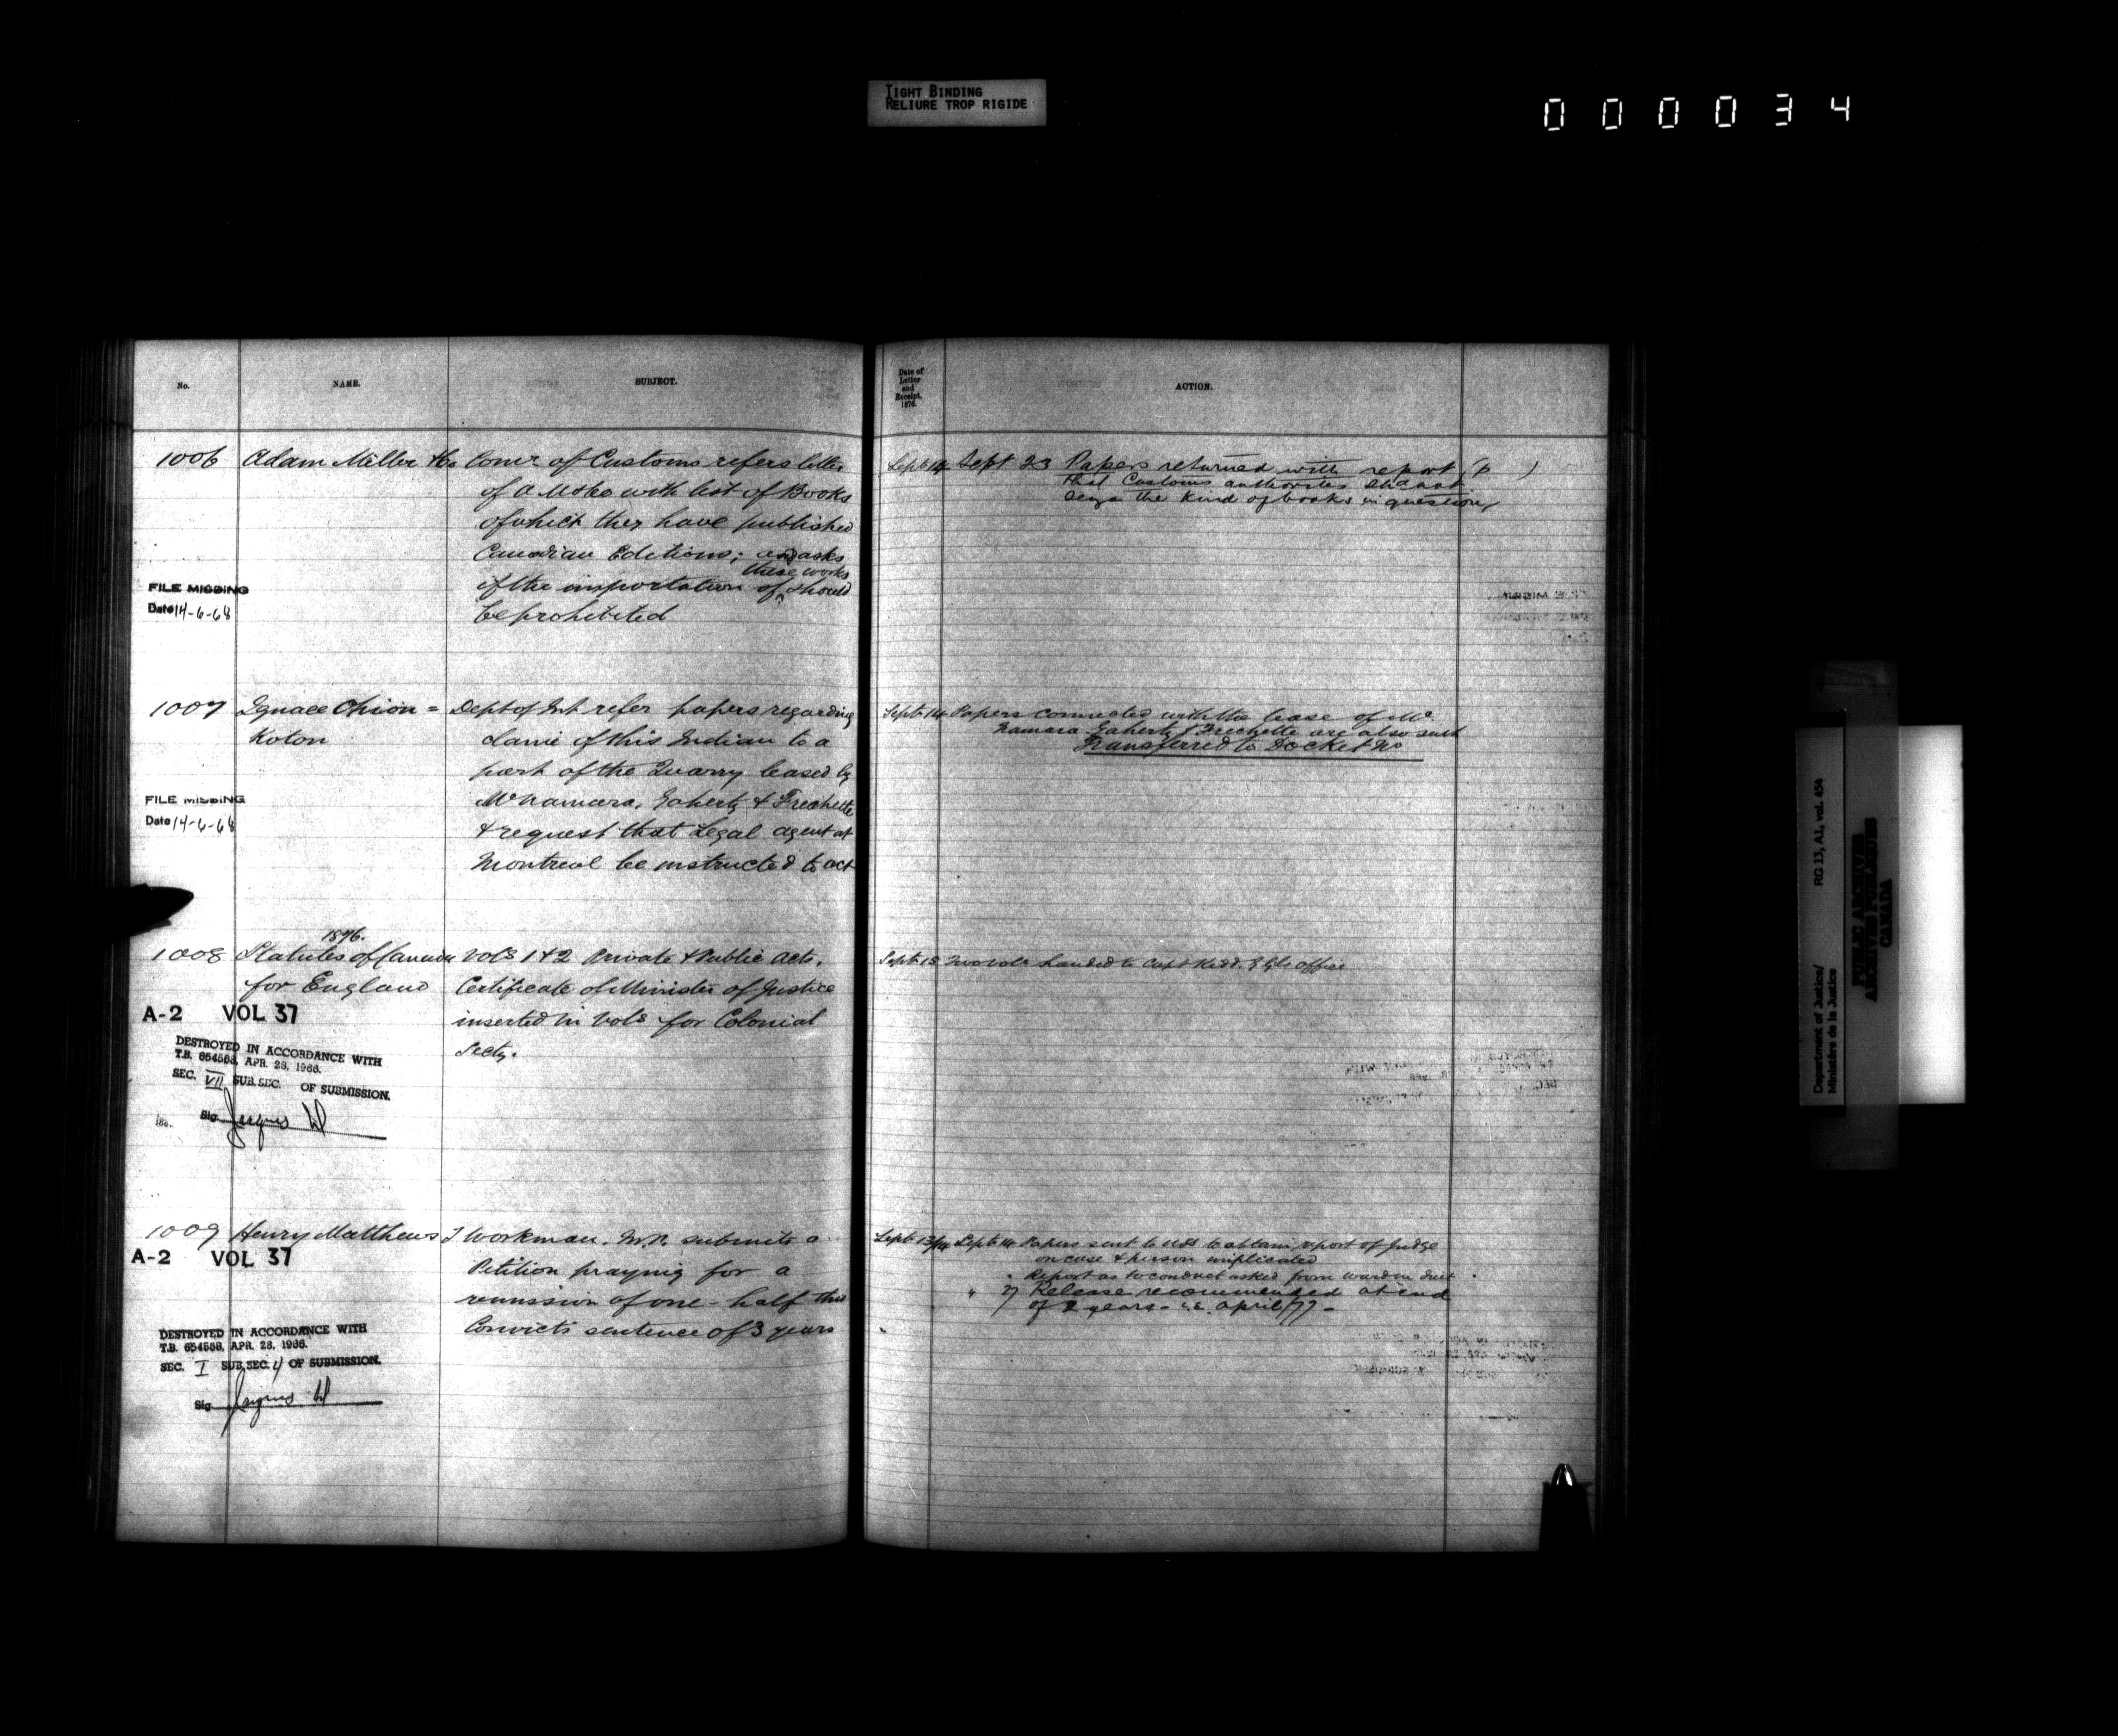 TIGHT BINDING
RELIURE TROP RIGIDE
000034
No.
NAME.
SUBJECT.
1006 Adam Miller & Co Comr of Customs refers letter
of A M & Co with list of Books
of which they have published
Canadian Editions; and asks
if the importation of these works should
be prohibited
FILE MISSING
Date 14-6-68
1007 Ignace Chion = Dept of Int refer papers regarding
Koton claim of this Indian to a
part of the Quarry leased by
McNamara, Gaherty & Frechette
& request that Legal agent at
Montreal be instructed to act
FILE MISSING
Date 14-6-68
1876.
1008 Statutes of Canada Vols 1 & 2 Private & Public Acts.
for England Certificate of Minister of Justice
inserted in Vols for Colonial
Secty.
A-2 VOL 37
DESTROYED IN ACCORDANCE WITH
T.B. 654558, APR. 28, 1966.
SEC. VII SUB.SEC. OF SUBMISSION.
Sig
1009 Henry Matthews T Workman. M.P. submits a
Petition praying for a
remission of one-half this
Convicts sentence of 3 years
A-2 VOL 37
DESTROYED IN ACCORDANCE WITH
T.B. 654558, APR. 28, 1966.
SEC. I SUB.SEC. 4 OF SUBMISSION.
Sig
Date of
Letter
and
Receipt,
1876.
ACTION.
Sept 14 Sept 23 Papers returned with report (p )
that Customs authorities shd not
seize the kind of books in question
Sept 14 Papers connected with the lease of Mc
Namara Gaherty & Frechette are also sent
Transferred to Docket No
Sept 15 Two vols handed to Capt Kidd. G Gls office
Sept 13/14 Sept 14 Papers sent to USS to obtain report of Judge
on case & person implicated
" Report as to conduct asked from warden
" 27 Release recommended at end
of 2 years - i.e. April/77 -
Department of Justice/
Ministère de la Justice
RG 13, A1, vol. 454
PUBLIC ARCHIVES
ARCHIVES PUBLIQUES
CANADA